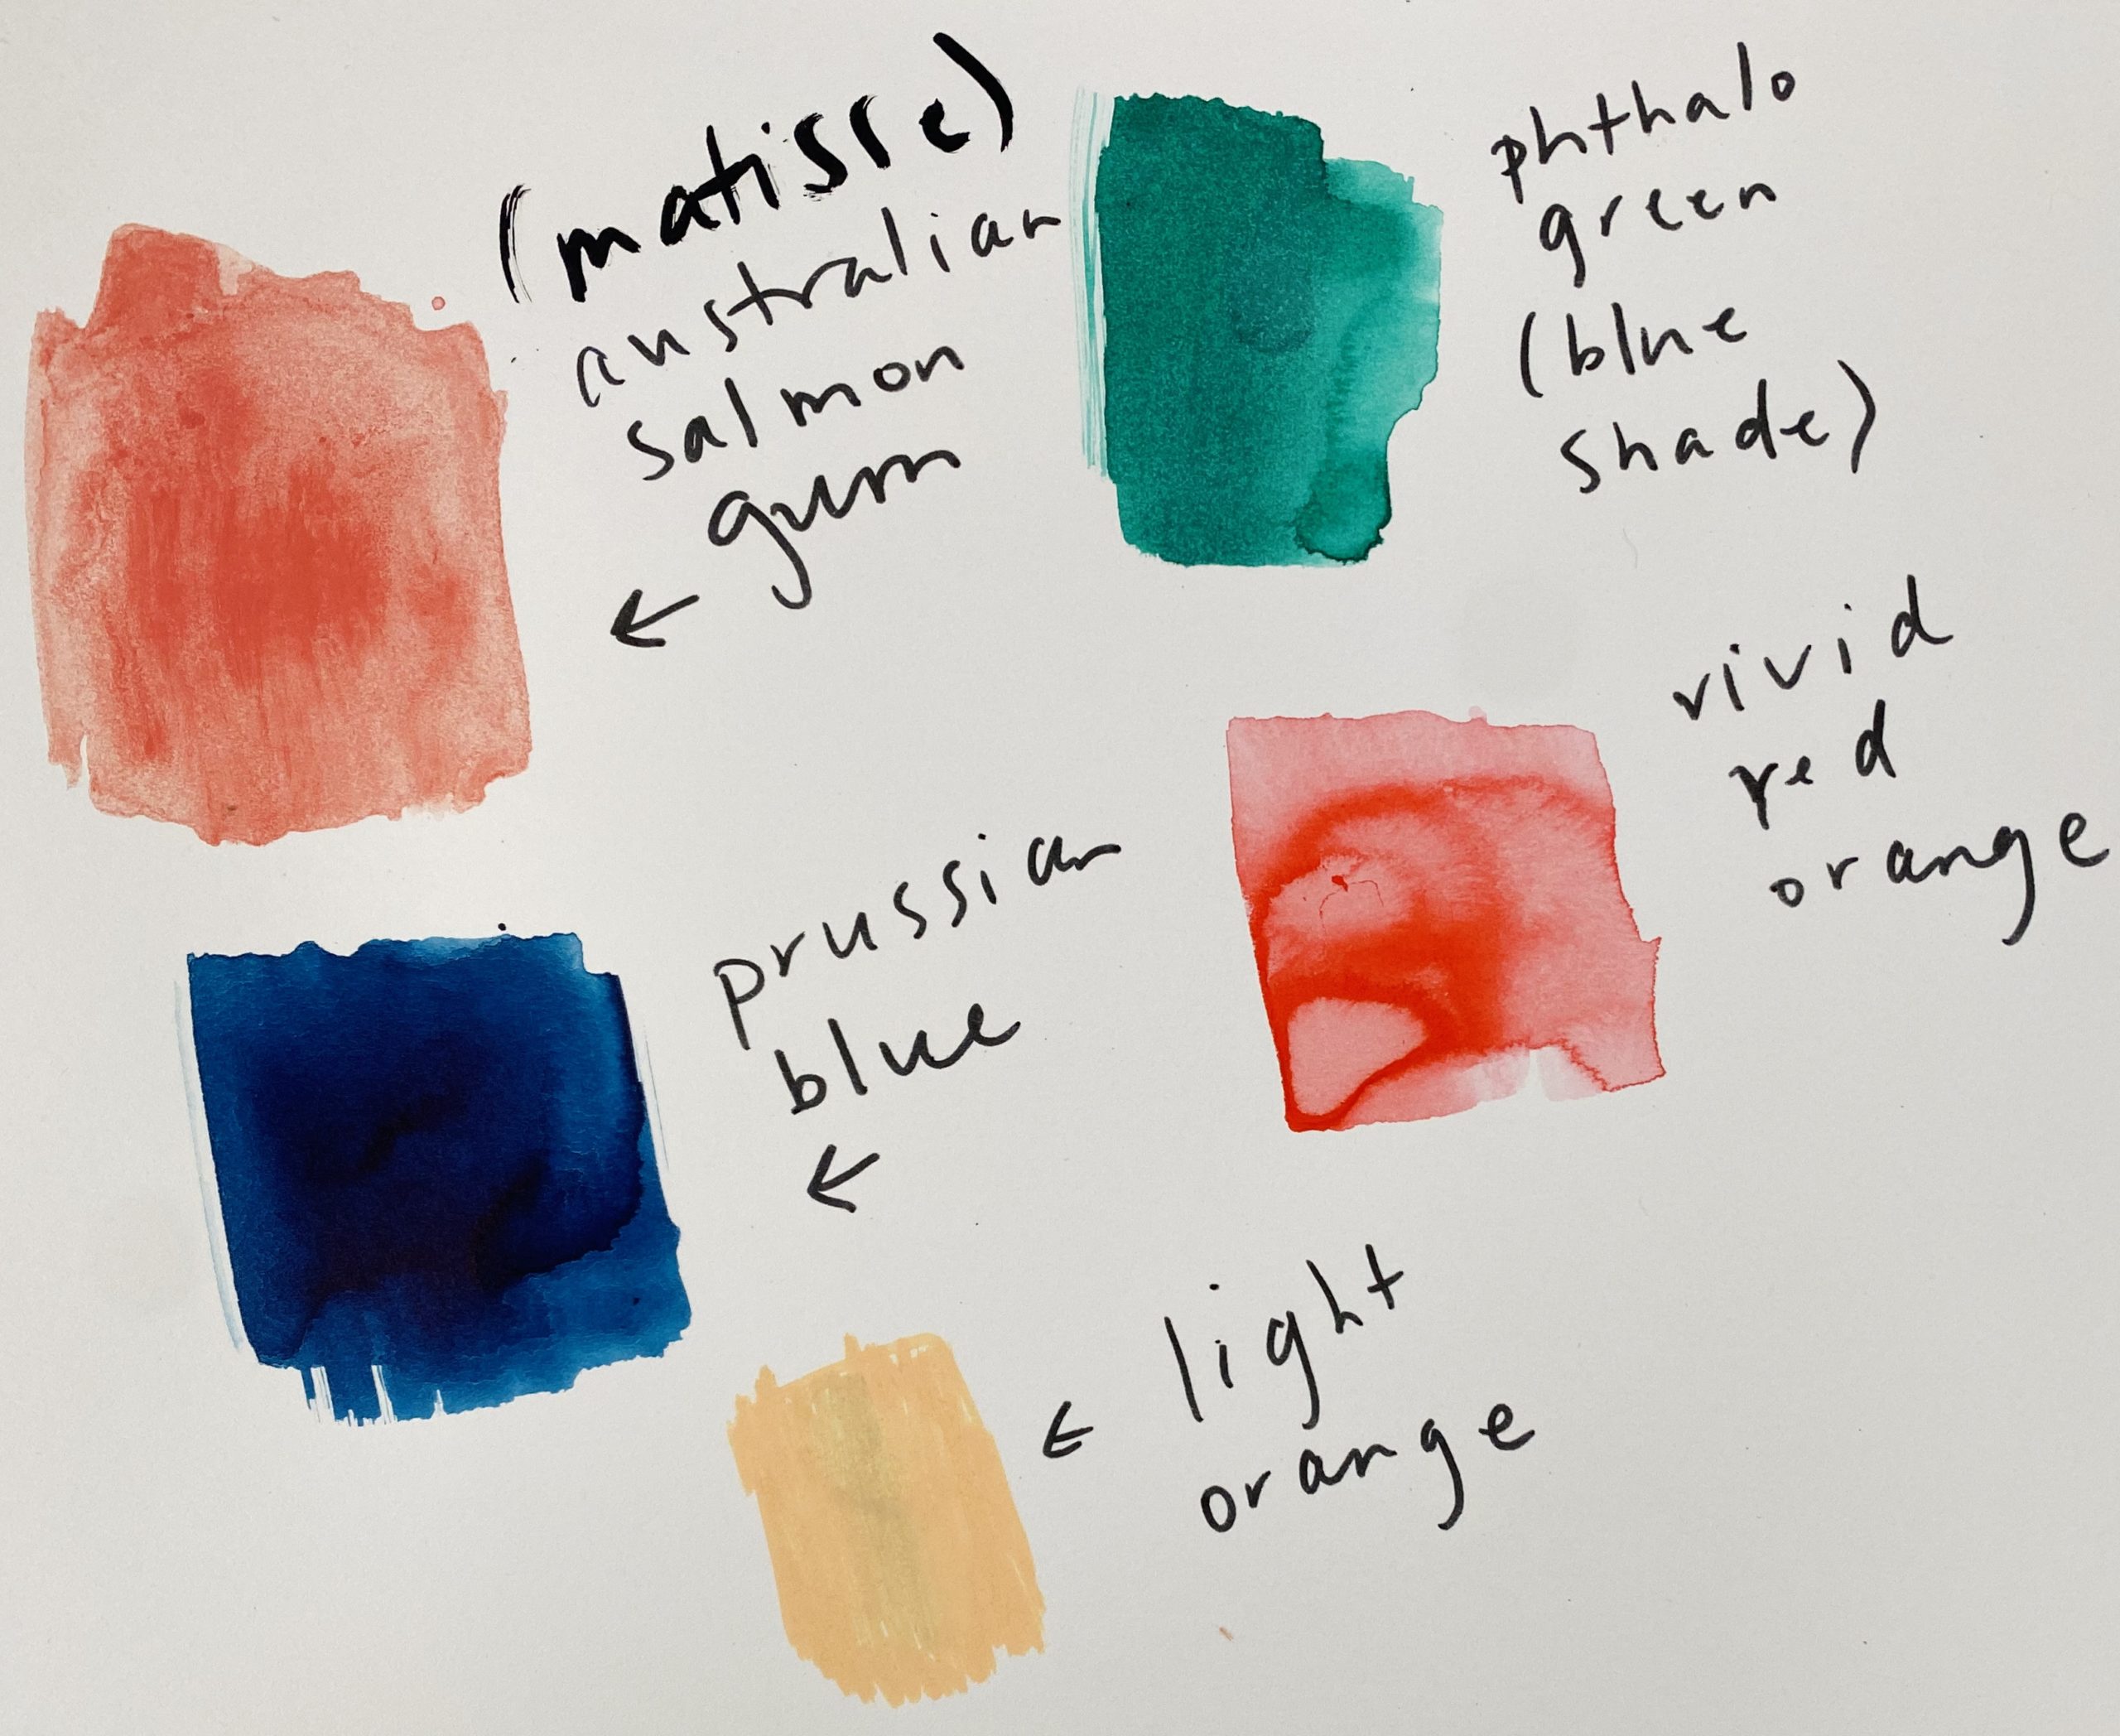 (matisse)
australian
salmon
gum
←
phthalo
green
(blue
shade)
vivid
red
orange
prussian
blue
←
← light
orange